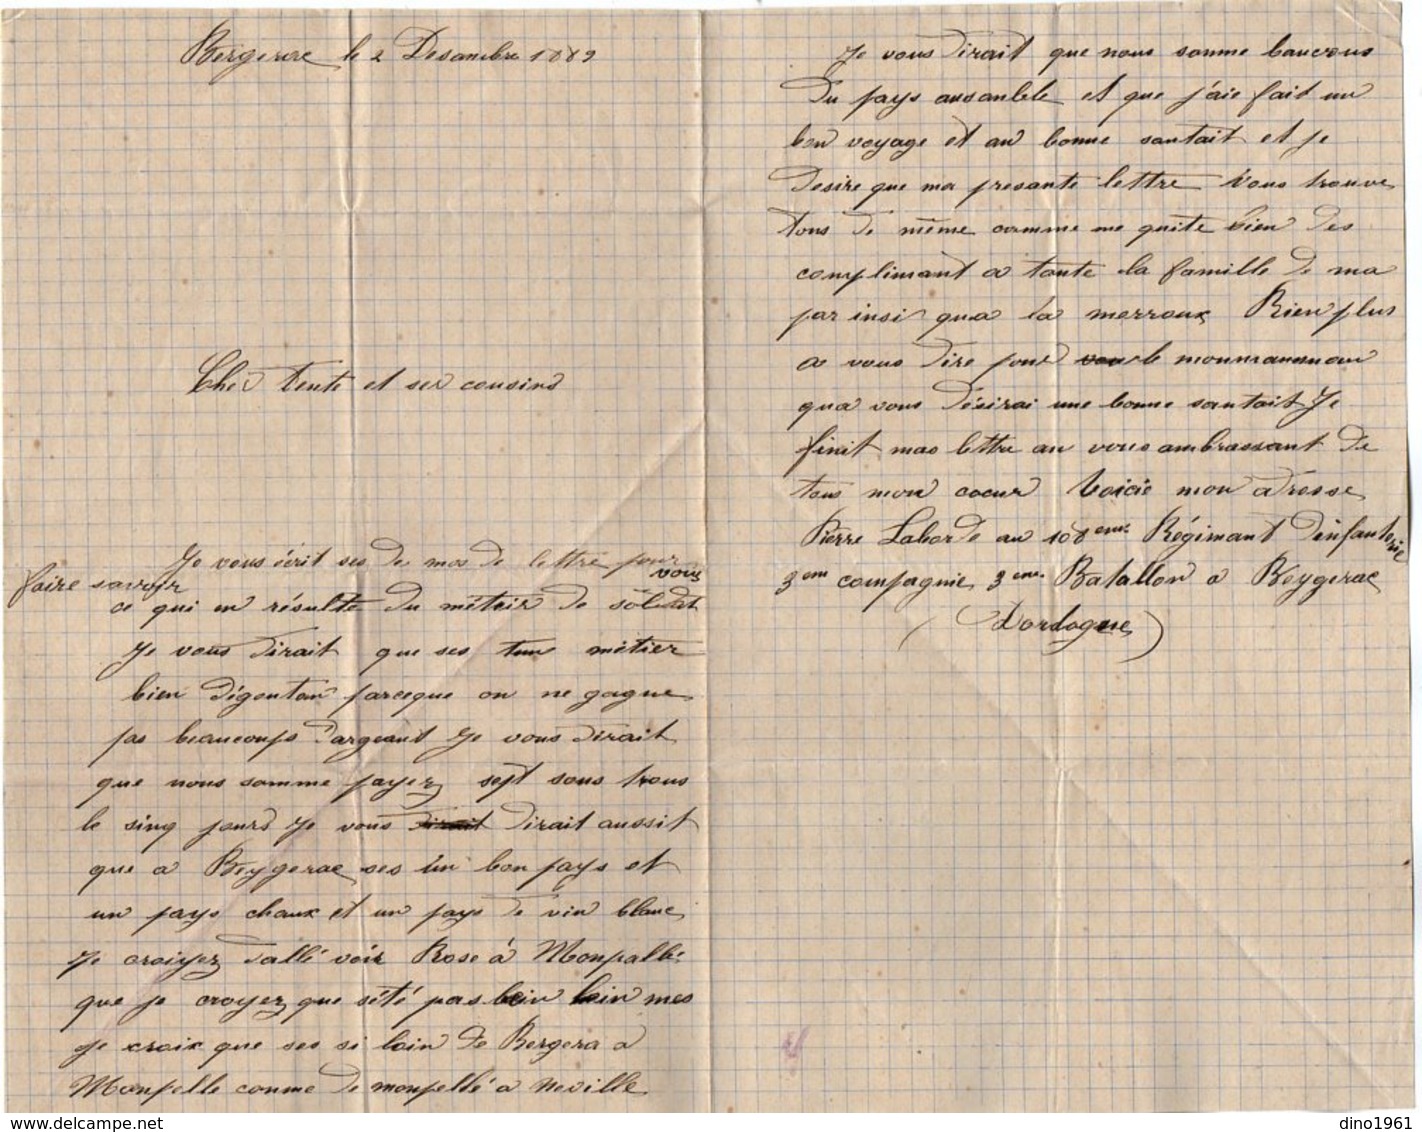 Bergerac le 2 Desambre 1889
Cher tente et ses cousins
Je vous écrit ses de mos de lettre pour vous
faire savoir
ce qui en résulte du métier de sôldat
Je vous dirait que ses tun métier
bien dégoutan parceque on ne gagne
pas beaucoups d'argeant Je vous dirait
que nous somme payez sept sous trous
le sinq jours Je vous dirait dirait aussit
que a Beygerac ses un bon pays et
un pays chaux et un pays de vin blanc
Je croiyez d'allé voir Rose à Monpallé
que je croyez que sété pas bein loin mes
Je croix que ses si loin de Bergera a
Monpelle comme de monpellé a neville
Je vous dirait que nous somme baucous
du pays ansanble et que j'aie fait un
bon voyage et an bonne santait et je
desire que ma presante lettre vous trouve
tous de même comme me quite bien des
complimant a toute la famille de ma
par insi qua la merraux Rien plus
a vous dire pour le mounmanman
qua vous désirai une bonne santait Je
finit mas lettre an vous ambrassant de
tous mon coeur Voicie mon adresse
Pierre Laborde au 108eme Régimant d'infanterie
3eme compagnie 3eme Batallon a Beygerac
(Dordogne)
dino1961